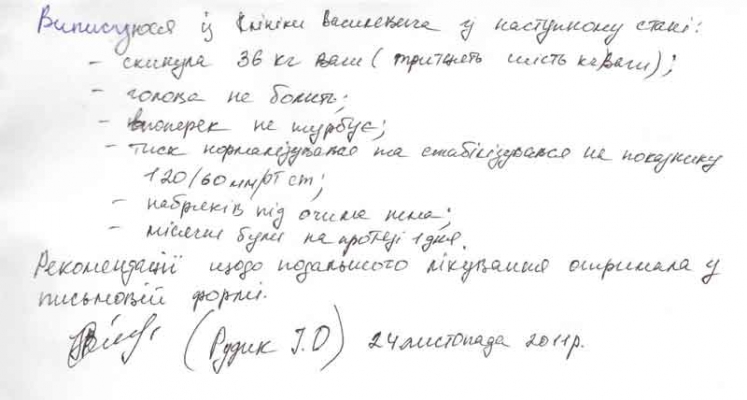 Виписуюся із клініки Василевича у наступному стані:
- скинула 36 кг ваги (тритцять шість кг ваги);
- голова не болить;
- поперек не турбує;
- тиск нормалізувався та стабілізувався на показнику
120/60 мм/рт ст;
- набряків під очима нема;
- місячні були на протязі 1 дня.
Рекомендації щодо подальшого лікування отримала у
письмовій формі.
(Рудик І.О) 24 листопада 2011р.